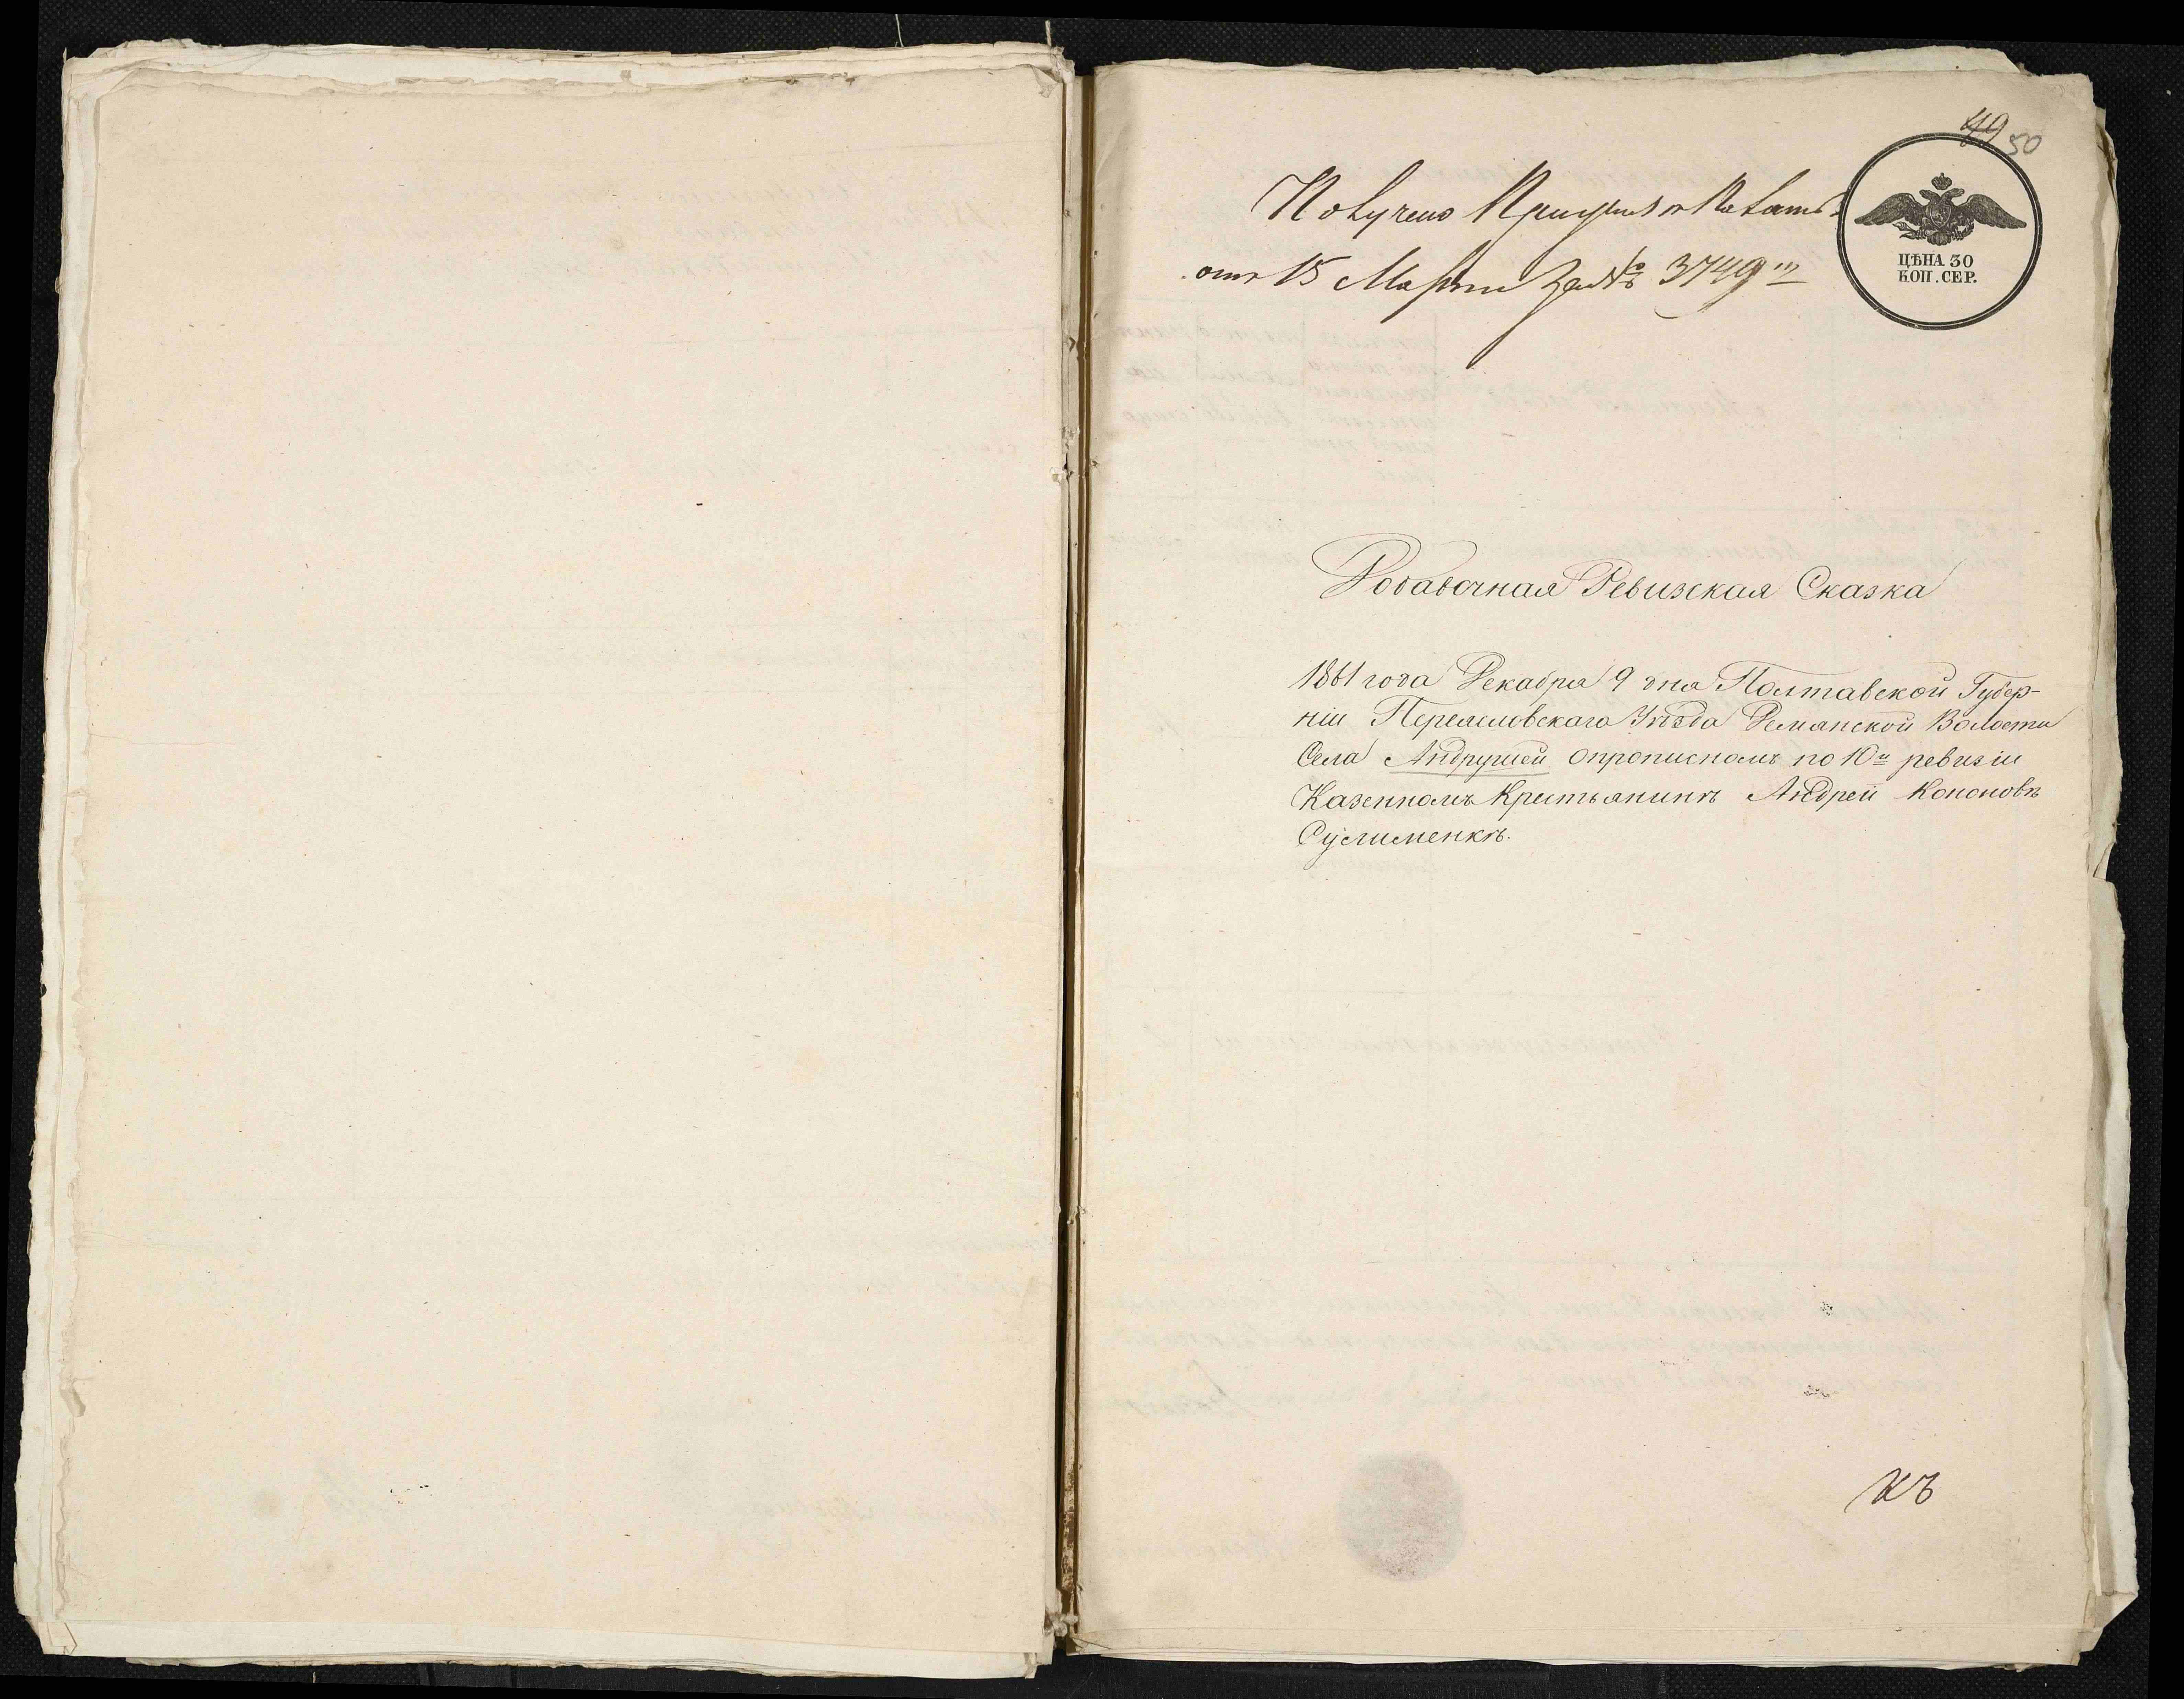 49 50
Получено При указѣ Палаты
отъ 15 Марта за № 3749ᵐ
ЦѢНА 30
КОП. СЕР.
Добавочная Ревизская Сказка
1861 года Декабра 9 дня Полтавской Губер-
ніи Переяславского Уѣзда Демянской Волости
Села Андрушей о прописномъ по 10й ревизіи
Казенномъ Крестьянинѣ Андреѣ Кононовѣ
Сулименкѣ.